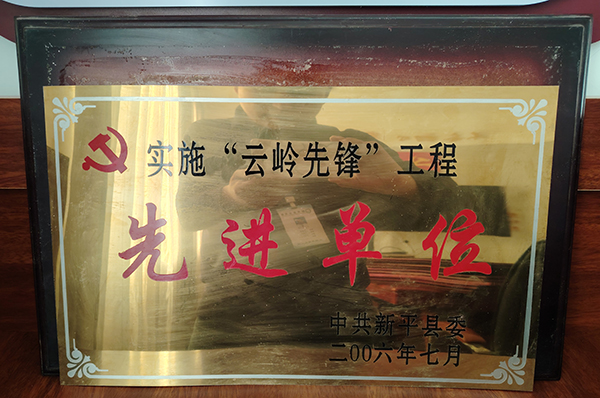 实施“云岭先锋”工程
先进单位
中共新平县委
二00六年七月